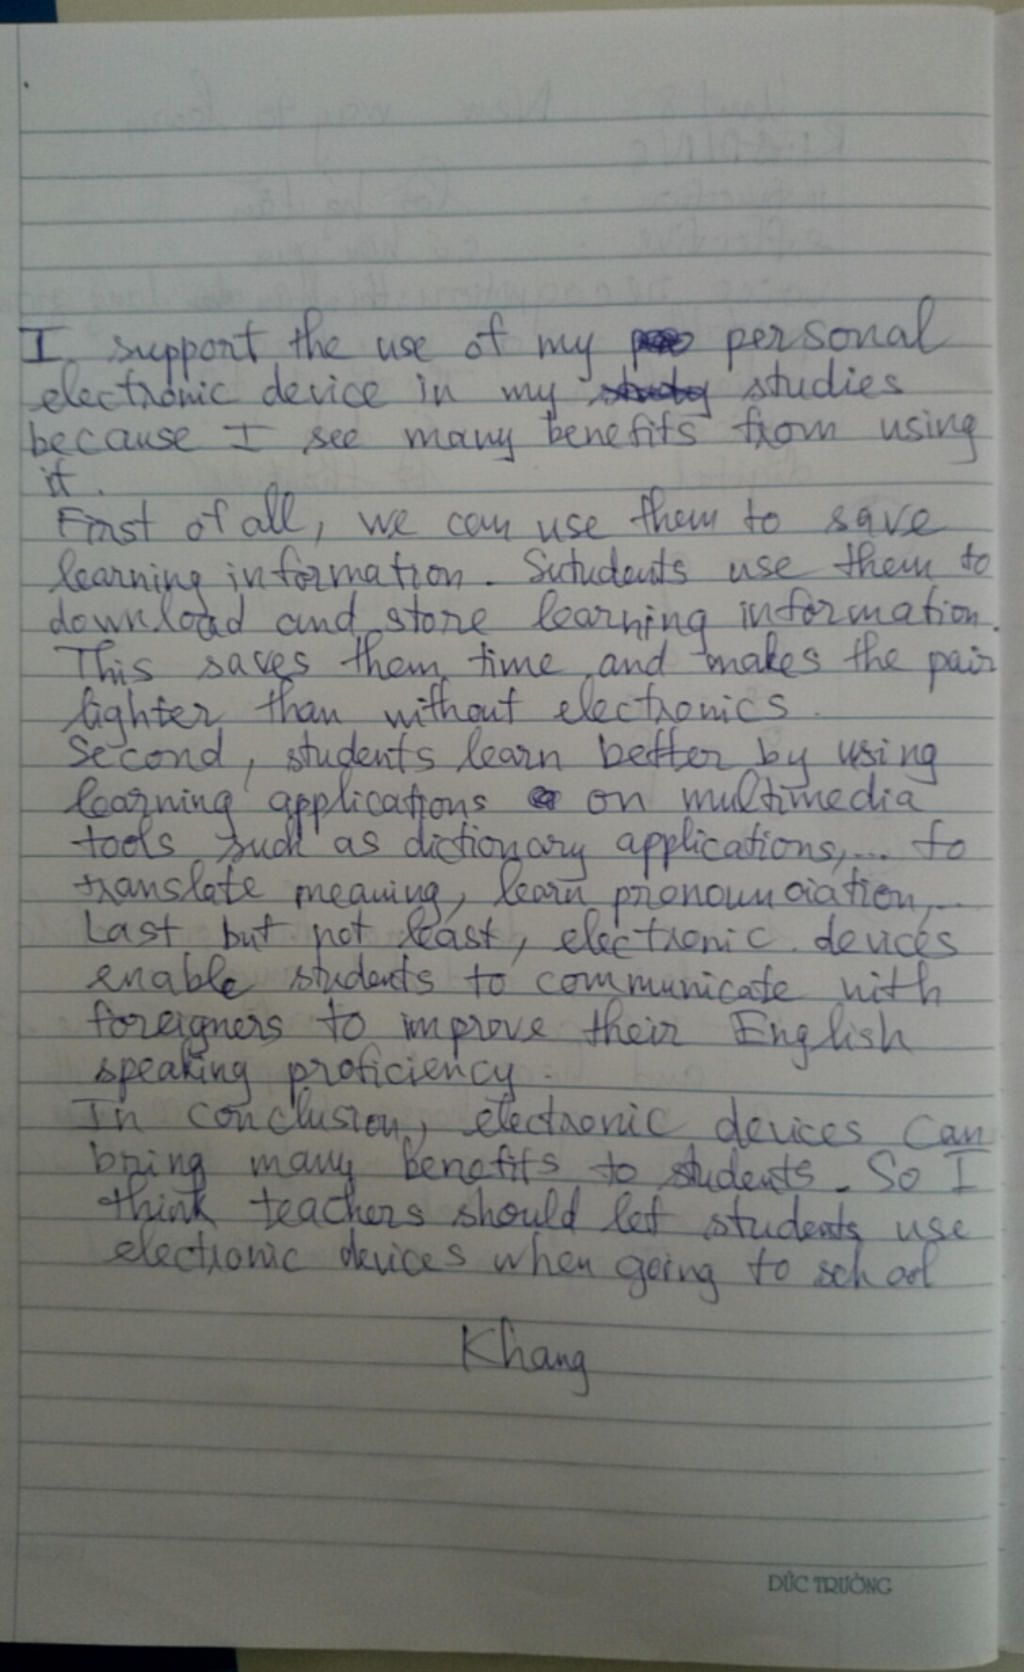 I support the use of my personal
electronic device in my study studies
because I see many benefits from using
it.
First of all, we can use them to save
learning information. Sutudents use them to
download and store learning information.
This saves them time and makes the pair
lighter than without electronics.
Second, students learn better by using
learning applications on multimedia
tools such as dictionary applications,... to
translate meaning, learn pronounciation,...
Last but not least, electronic devices
enable students to communicate with
foreigners to improve their English
speaking proficiency.
In conclusion, electronic devices can
bring many benefits to students. So I
think teachers should let students use
electronic devices when going to school
Khang
ĐỨC TRƯỜNG